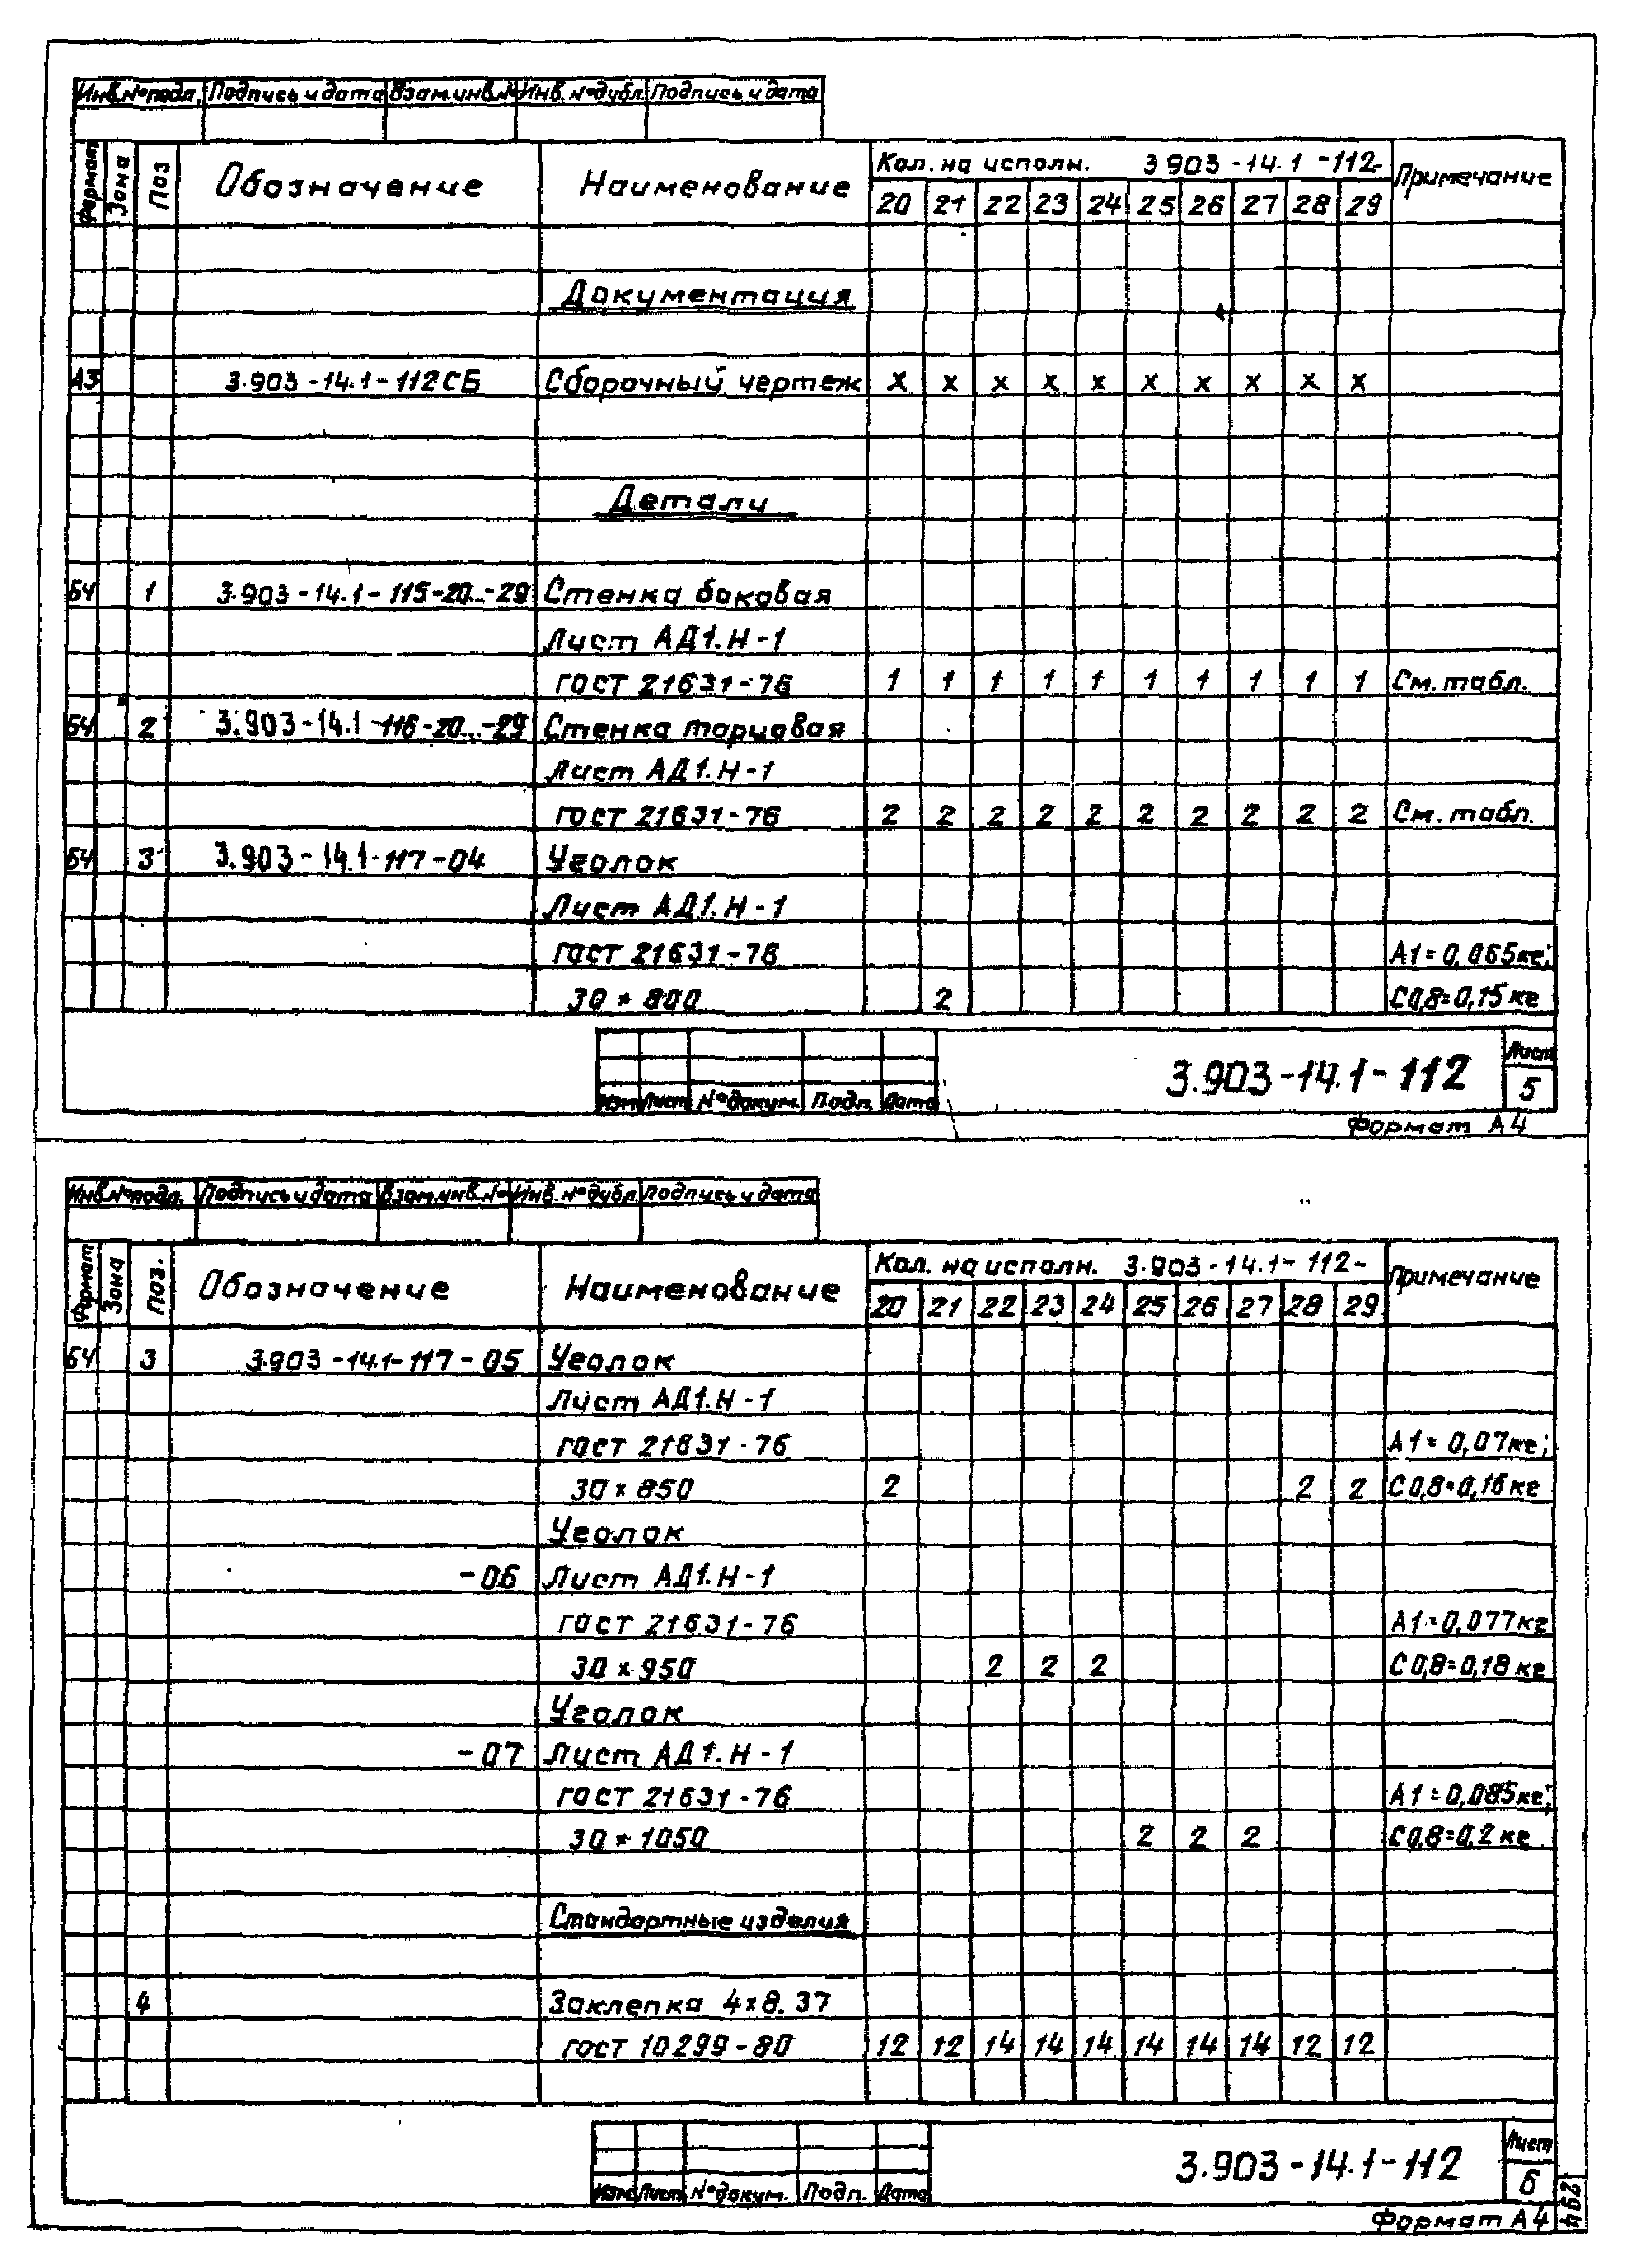 Инв.№подл. Подпись и дата Взам.инв.№ Инв.№дубл. Подпись и дата
Формат Зона Поз Обозначение Наименование Кол. на исполн. 3.903-14.1-112- Примечание
20 21 22 23 24 25 26 27 28 29
Документация
А3 3.903-14.1-112СБ Сборочный чертеж х х х х х х х х х х
Детали
БЧ 1 3.903-14.1-115-20...-29 Стенка боковая
Лист АД1.Н-1
ГОСТ 21631-76 1 1 1 1 1 1 1 1 1 1 См. табл.
БЧ 2 3.903-14.1-116-20...-29 Стенка торцовая
Лист АД1.Н-1
ГОСТ 21631-76 2 2 2 2 2 2 2 2 2 2 См. табл.
БЧ 3 3.903-14.1-117-04 Уголок
Лист АД1.Н-1
ГОСТ 21631-76 А1=0,065кг;
30×800 2 С0,8=0,15 кг
3.903-14.1-112 Лист
Изм Лист №докум. Подп. Дата 5
Формат А4
Инв.№подл. Подпись и дата Взам.инв.№ Инв.№дубл. Подпись и дата
Формат Зона Поз. Обозначение Наименование Кол. на исполн. 3.903-14.1-112- Примечание
20 21 22 23 24 25 26 27 28 29
БЧ 3 3.903-14.1-117-05 Уголок
Лист АД1.Н-1
ГОСТ 21631-76 А1=0,07кг;
30×850 2 2 2 С0,8=0,16 кг
Уголок
-06 Лист АД1.Н-1
ГОСТ 21631-76 А1=0,077кг
30×950 2 2 2 С0,8=0,18 кг
Уголок
-07 Лист АД1.Н-1
ГОСТ 21631-76 А1=0,085кг;
30×1050 2 2 2 С0,8=0,2 кг
Стандартные изделия
4 Заклепка 4×8.37
ГОСТ 10299-80 12 12 14 14 14 14 14 14 12 12
3.903-14.1-112 Лист
Изм Лист №докум. Подп. Дата 6
Формат А4